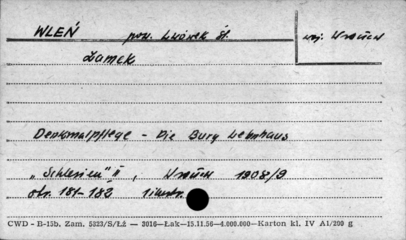 WLEŃ pow. Lwówek Śl. woj. Wrocław
Zamek
Denkmalpflege - Die Burg Lehnhaus
„Schlesien" II, Wrocław 1908/9
str. 181-182 1 ilustr.
CWD - B-15b. Zam. 5323/S/Łż — 3016—Łak—15.11.56—4.000.000—Karton kl. IV A1/200 g